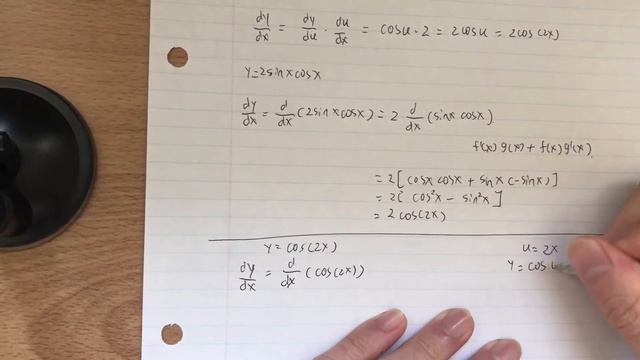 dy/dx = dy/du · du/dx = cosu · 2 = 2cosu = 2cos(2x)
y=2sinxcosx
dy/dx = d/dx (2sinxcosx) = 2 d/dx (sinx cosx)
f'(x)g(x) + f(x)g'(x)
= 2[cosx cosx + sinx(-sinx)]
= 2[cos²x - sin²x]
= 2cos(2x)
y = cos(2x)
u = 2x
dy/dx = d/dx (cos(2x))
y = cosu